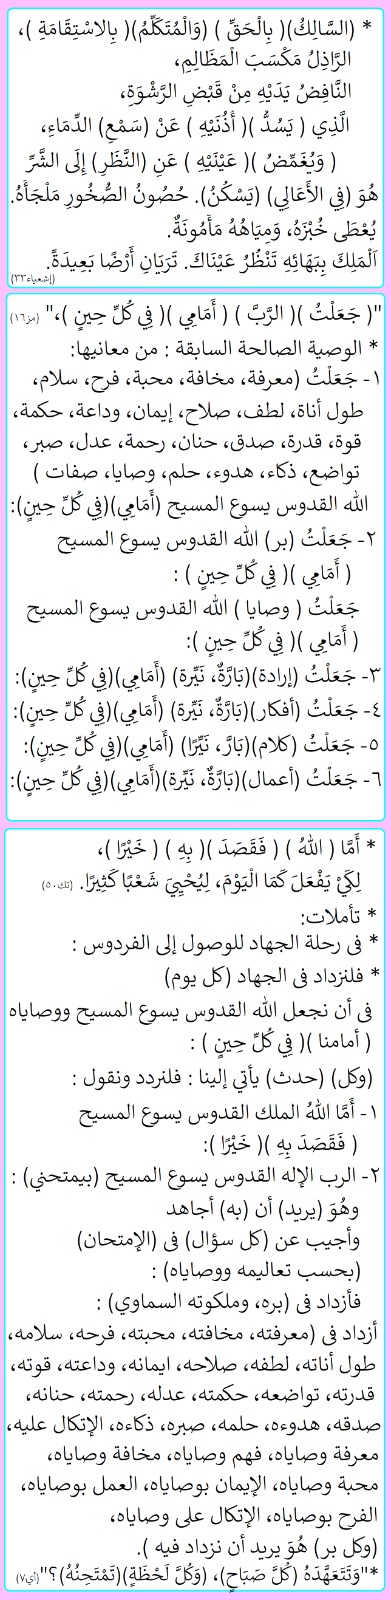 * (السَّالِكُ)( بِالْحَقِّ ) (وَالْمُتَكَلِّمُ)( بِالاسْتِقَامَةِ )،
الرَّاذِلُ مَكْسَبَ الْمَظَالِمِ،
النَّافِضُ يَدَيْهِ مِنْ قَبْضِ الرَّشْوَةِ،
الَّذِي ( يَسُدُّ )( أُذُنَيْهِ ) عَنْ (سَمْعِ) الدِّمَاءِ،
( وَيُغَمِّضُ )( عَيْنَيْهِ ) عَنِ (النَّظَرِ) إِلَى الشَّرِّ
هُوَ (فِي الأَعَالِي) (يَسْكُنُ). حُصُونُ الصُّخُورِ مَلْجَأُهُ.
يُعْطَى خُبْزَهُ، وَمِيَاهُهُ مَأْمُونَةٌ.
اَلْمَلِكَ بِبَهَائِهِ تَنْظُرُ عَيْنَاكَ. تَرَيَانِ أَرْضًا بَعِيدَةً. (إشعياء٣٣)
"( جَعَلْتُ )( الرَّبَّ ) ( أَمَامِي )( فِي كُلِّ حِينٍ )،" (مز١٦)
* الوصية الصالحة السابقة : من معانيها:
١- جَعَلْتُ (معرفة، مخافة، محبة، فرح، سلام،
طول أناة، لطف، صلاح، إيمان، وداعة، حكمة،
قوة، قدرة، صدق، حنان، رحمة، عدل، صبر،
تواضع، ذكاء، هدوء، حلم، وصايا، صفات )
الله القدوس يسوع المسيح (أَمَامِي)(فِي كُلِّ حِينٍ):
٢- جَعَلْتُ (بر) الله القدوس يسوع المسيح
( أَمَامِي )( فِي كُلِّ حِينٍ ) :
جَعَلْتُ ( وصايا ) الله القدوس يسوع المسيح
( أَمَامِي )( فِي كُلِّ حِينٍ ):
٣- جَعَلْتُ (إرادة)(بَارَّةٌ، نَيِّرة) (أَمَامِي)(فِي كُلِّ حِينٍ):
٤- جَعَلْتُ (أفكار)(بَارَّةٌ، نَيِّرة) (أَمَامِي)(فِي كُلِّ حِينٍ):
٥- جَعَلْتُ (كلام)(بَارَّ، نَيِّرًا) (أَمَامِي)(فِي كُلِّ حِينٍ):
٦- جَعَلْتُ (أعمال)(بَارَّةٌ، نَيِّرة)(أَمَامِي)(فِي كُلِّ حِينٍ):
* أَمَّا ( اللهُ ) ( فَقَصَدَ )( بِهِ ) ( خَيْرًا )،
لِكَيْ يَفْعَلَ كَمَا الْيَوْمَ، لِيُحْيِيَ شَعْبًا كَثِيرًا. (تك٥٠)
* تأملات:
* فى رحلة الجهاد للوصول إلى الفردوس :
* فلنزداد فى الجهاد (كل يوم)
فى أن نجعل الله القدوس يسوع المسيح ووصاياه
( أمامنا )( فِي كُلِّ حِينٍ ) :
(وكل) (حدث) يأتي إلينا : فلنردد ونقول :
١- أَمَّا اللهُ الملك القدوس يسوع المسيح
( فَقَصَدَ بِهِ )( خَيْرًا ):
٢- الرب الإله القدوس يسوع المسيح (بيمتحني) :
وهُوَ (يريد) أن (به) أجاهد
وأجيب عن (كل سؤال) فى (الإمتحان)
(بحسب تعاليمه ووصاياه) :
فأزداد فى (بره، وملكوته السماوي) :
أزداد فى (معرفته، مخافته، محبته، فرحه، سلامه،
طول أناته، لطفه، صلاحه، ايمانه، وداعته، قوته،
قدرته، تواضعه، حكمته، عدله، رحمته، حنانه،
صدقه، هدوءه، حلمه، صبره، ذكاءه، الإتكال عليه،
معرفة وصاياه، فهم وصاياه، مخافة وصاياه،
محبة وصاياه، الإيمان بوصاياه، العمل بوصاياه،
الفرح بوصاياه، الإتكال على وصاياه،
(وكل بر) هُوَ يريد أن نزداد فيه ).
*"وَتَتَعَهَّدَهُ (كُلَّ صَبَاحٍ)، (وَكُلَّ لَحْظَةٍ)(تَمْتَحِنُهُ)؟"(أي٧)